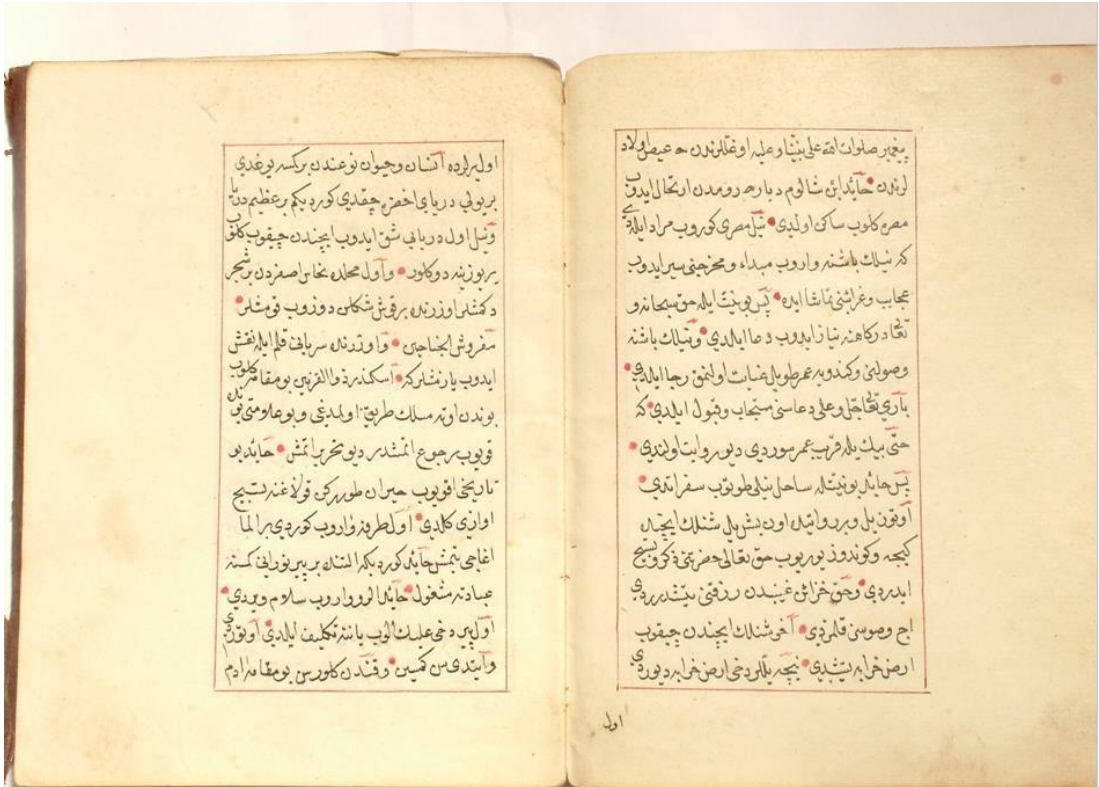 پیغمبر صلوات الله علی نبینا وعلیه اوغللرندن عیص اولاد
لرندن حائد ابن شالوم دیار رومدن ارتحال ایدوب
مصره کلوب ساکن اولدی نیل مصری کوروب مراد ایلدی
که نیلك باشنه واروب مبداء ومخرجنی سیر ایدوب
عجایب وغرائبنی تماشا ایده پس بو نیت ایله حق سبحانه و
تعالی درکاهنه نیاز ایدوب دعا ایلدی ونیلك باشنه
وصولنی وکندویه عمر طویل عنایت اولنمق رجا ایلدی
باری تعالی جل وعلی دعاسنی مستجاب وقبول ایلدی که
حتی بیك یله قریب عمر سوردی دیو روایت اولندی
پس حائد بو نیتله ساحل نیلی طوتوب سفر اتدی
اوتوز یل وبر روایتده اون بش یل شنلك ایچنده
کیجه وکوندوز یوریوب حق تعالی حضرتنی ذکر وتسبیح
ایدردی وحق خزائن غیبندن رزقنی یتشدرردی
اج وصوسز قلمزدی آخر شنلك ایچندن چیقوب
ارض خرابه یتشدی نیچه یللر دخی ارض خرابه ده یوردی
اول
اول یرلرده انسان وحیوان نوعندن بر کسه یوغدی
بر یولی دریای اخضره چقدی کوردیکم بر عظیم دریا
ونیل اول دریایی شق ایدوب ایچندن چیقوب کلوب
یر یوزینه دوکلور واول محلده نحاس اصفردن بر شجر
دکمشلر اوزرنده بر قوش شکلن دوزوب قومشلر
مفروش الجناحین واوزرنده سریانی قلم ایله نقش
ایدوب یازمشلر که اسکندر ذو القرنین بو مقامه کلوب
بوندن اوته مسلك طریق اولمدیغی وبو علامتی بونده
قویوب رجوع اتمشدر دیو تحریر اتمش حائد بو
تاریخی اقویوب حیران طورر کن قولاغنه تسبیح
اوازی کلدی اول طرفه واروب کوردی بر الما
اغاجی بتمش حائد کوردیکه التنده بر پیر نورانی کمسنه
عبادته مشغول حائد ایلرو واروب سلام ویردی
اول پیر دخی علیك الوب یاننه تکلیف ایلدی اوتوردی
وایتدی سن کمسین وقندن کلورسن بو مقامه ادم